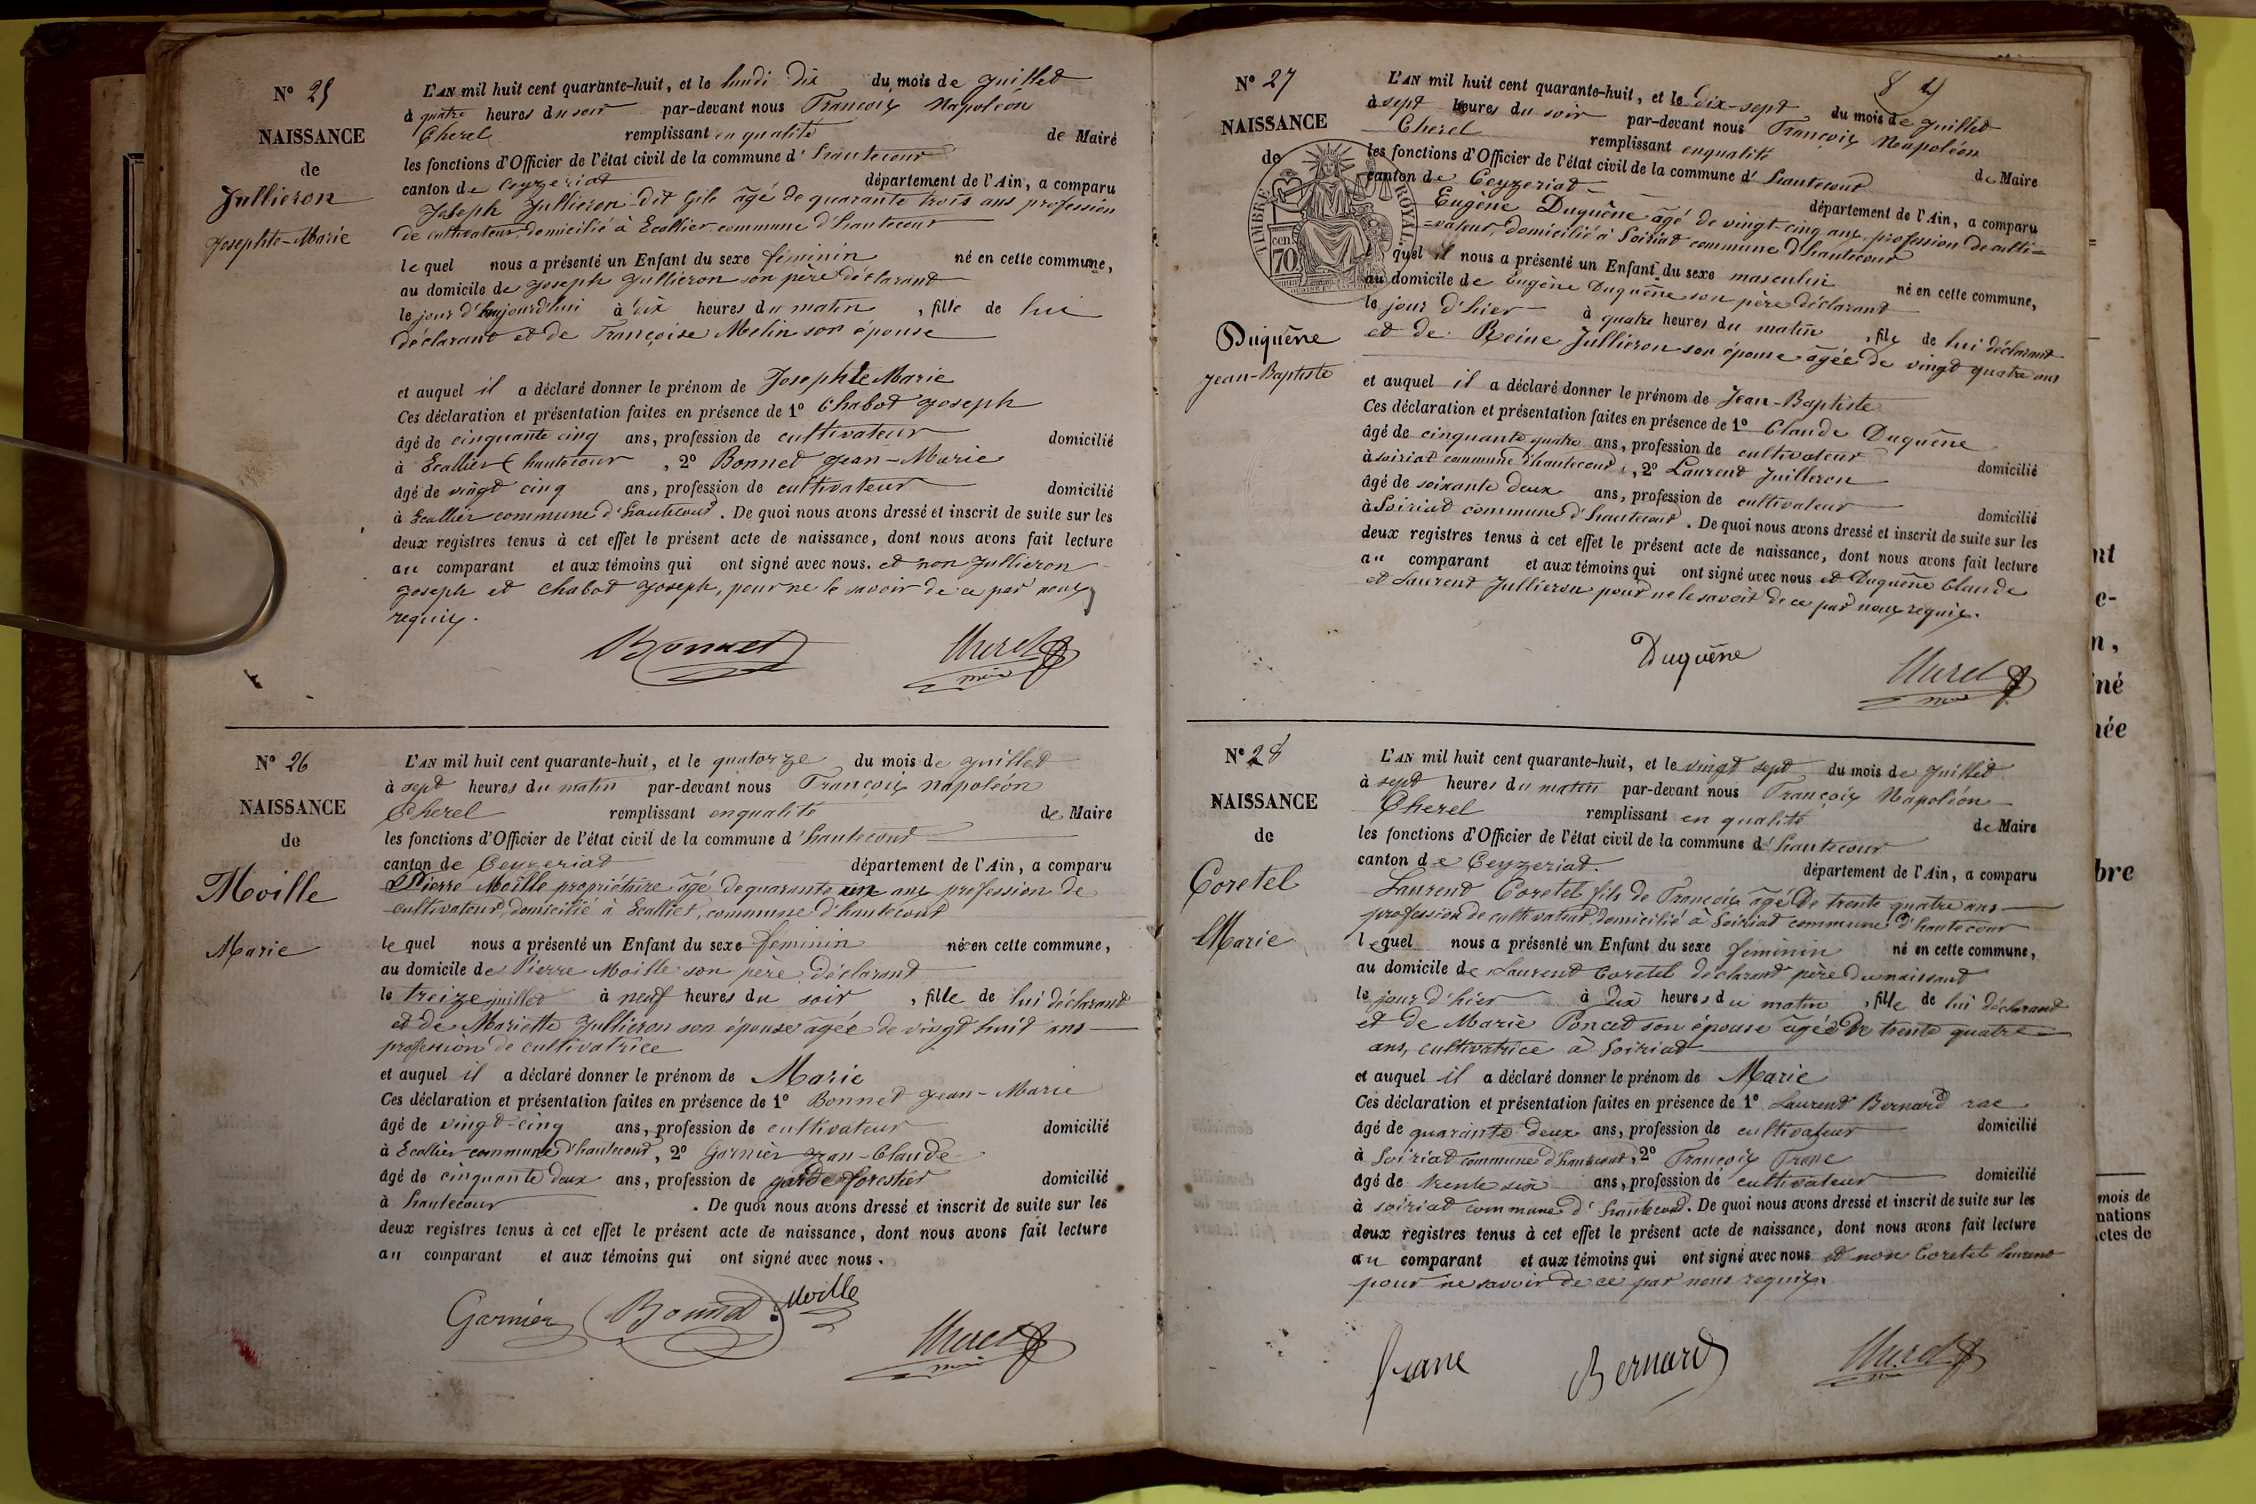 N° 25
NAISSANCE
de
Jullieron
Josephte-Marie
L'AN mil huit cent quarante-huit, et le lundi dix du mois de juillet
à quatre heures du soir par-devant nous François Napoléon
Cherel remplissant en qualité de Maire
les fonctions d'Officier de l'état civil de la commune d'hautecour
canton de Ceyzeriat département de l'Ain, a comparu
Joseph Jullieron dit Gile âgé de quarante trois ans profession
de cultivateur, domicilié à Ecollier commune d'hautecour
lequel nous a présenté un Enfant du sexe féminin né en cette commune,
au domicile de Joseph Jullieron son père déclarant
le jour d'aujourd'hui à dix heures du matin, fille de lui
déclarant et de Françoise Melin son épouse
et auquel il a déclaré donner le prénom de Josephte Marie
Ces déclaration et présentation faites en présence de 1° Chabod Joseph
âgé de cinquante cinq ans, profession de cultivateur domicilié
à Ecollier (hautecour, 2° Bonnet Jean-Marie
âgé de vingt cinq ans, profession de cultivateur domicilié
à Ecollier commune d'hautecour. De quoi nous avons dressé et inscrit de suite sur les
deux registres tenus à cet effet le présent acte de naissance, dont nous avons fait lecture
au comparant et aux témoins qui ont signé avec nous. et non Jullieron
Joseph et Chabod Joseph, pour ne le savoir de ce par nous
requis.
Bonnet
maire
N° 26
NAISSANCE
de
Moille
Marie
L'AN mil huit cent quarante-huit, et le quatorze du mois de juillet
à sept heures du matin par-devant nous François Napoléon
Cherel remplissant en qualité de Maire
les fonctions d'Officier de l'état civil de la commune d'hautecour
canton de Ceyzeriat département de l'Ain, a comparu
Pierre Moille propriétaire âgé de quarante un ans profession de
cultivateur, domicilié à Ecollier, commune d'hautecour
lequel nous a présenté un Enfant du sexe féminin né en cette commune,
au domicile de Pierre Moille son père déclarant
le treize juillet à neuf heures du soir, fille de lui déclarant
et de Mariette Jullieron son épouse âgée de vingt huit ans
profession de cultivatrice
et auquel il a déclaré donner le prénom de Marie
Ces déclaration et présentation faites en présence de 1° Bonnet Jean-Marie
âgé de vingt-cinq ans, profession de cultivateur domicilié
à Ecollier commune d'hautecour, 2° Garnier Jean-Claude
âgé de cinquante deux ans, profession de garde forestier domicilié
à hautecour. De quoi nous avons dressé et inscrit de suite sur les
deux registres tenus à cet effet le présent acte de naissance, dont nous avons fait lecture
au comparant et aux témoins qui ont signé avec nous.
Garnier Bonnet Moille
maire
N° 27
NAISSANCE
de
TIMBRE ROYAL
cen 70
Duquêne
Jean-Baptiste
L'AN mil huit cent quarante-huit, et le dix-sept du mois de juillet
à sept heures du soir par-devant nous François Napoléon
Cherel remplissant en qualité de Maire
les fonctions d'Officier de l'état civil de la commune d'hautecour
canton de Ceyzeriat département de l'Ain, a comparu
Eugène Duquêne âgé de vingt-cinq ans profession de culti=
=vateur, domicilié à Soiriat commune d'hautecour
quel il nous a présenté un Enfant du sexe masculin né en cette commune,
au domicile de Eugène Duquêne son père déclarant
le jour d'hier à quatre heures du matin, fils de lui déclarant
et de Reine Jullieron son épouse âgée de vingt quatre ans
et auquel il a déclaré donner le prénom de Jean-Baptiste
Ces déclaration et présentation faites en présence de 1° Claude Duquêne
âgé de cinquante quatre ans, profession de cultivateur domicilié
à soiriat commune d'hautecour, 2° Laurent Juilleron
âgé de soixante deux ans, profession de cultivateur domicilié
à Soiriat commune d'hautecour. De quoi nous avons dressé et inscrit de suite sur les
deux registres tenus à cet effet le présent acte de naissance, dont nous avons fait lecture
au comparant et aux témoins qui ont signé avec nous et Duquêne Claude
et Laurent Jullieron pour ne le savoir de ce par nous requis.
Duquêne
maire
N° 28
NAISSANCE
de
Coretel
Marie
L'AN mil huit cent quarante-huit, et le vingt sept du mois de juillet
à sept heures du matin par-devant nous François Napoléon
Cherel remplissant en qualité de Maire
les fonctions d'Officier de l'état civil de la commune d'hautecour
canton de Ceyzeriat. département de l'Ain, a comparu
Laurent Coretel fils de François âgé de trente quatre ans
profession de cultivateur, domicilié à Soiriat commune d'hautecour
lequel nous a présenté un Enfant du sexe féminin né en cette commune,
au domicile de Laurent Coretel déclarant père du naissant
le jour d'hier à dix heures du matin, fille de lui déclarant
et de Marie Poncet son épouse âgée de trente quatre
ans, cultivatrice à Soiriat
et auquel il a déclaré donner le prénom de Marie
Ces déclaration et présentation faites en présence de 1° Laurent Bernard
âgé de quarante deux ans, profession de cultivateur domicilié
à Soiriat commune d'hautecour, 2° François Frane
âgé de trente six ans, profession de cultivateur domicilié
à soiriat commune d'hautecour. De quoi nous avons dressé et inscrit de suite sur les
deux registres tenus à cet effet le présent acte de naissance, dont nous avons fait lecture
au comparant et aux témoins qui ont signé avec nous et non Coretel Laurent
pour ne savoir de ce par nous requis.
frane Bernard